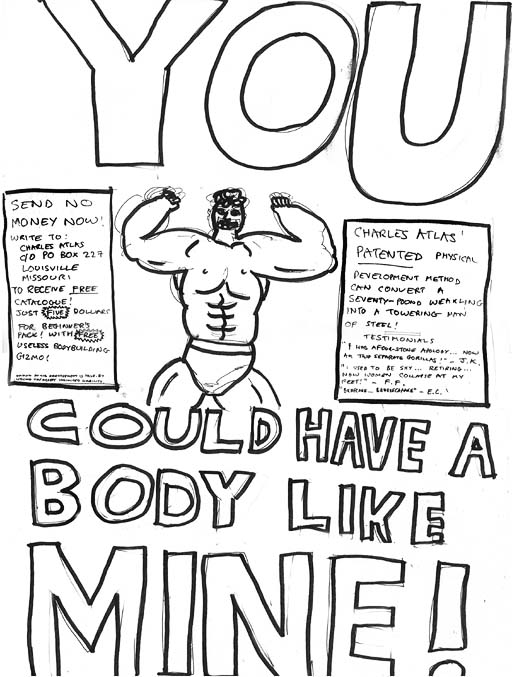 YOU
SEND NO
MONEY NOW!
WRITE TO:
CHARLES ATLAS
C/O PO BOX 227
LOUISVILLE
MISSOURI
TO RECEIVE FREE
CATALOGUE!
JUST FIVE DOLLARS
FOR BEGINNER'S
PACK! WITH FREE
USELESS BODYBUILDING
GIZMO!
CHARLES ATLAS'
PATENTED PHYSICAL
DEVELOPMENT METHOD
CAN CONVERT A
SEVENTY-POUND WEAKLING
INTO A TOWERING MAN
OF STEEL!
TESTIMONIALS
"I WAS A FOUR-STONE NOBODY... NOW
I'M TWO SEPARATE GORILLAS!" - J.K.
"I USED TO BE SHY... RETIRING...
NOW WOMEN COLLAPSE AT MY
FEET!" - F.F.
- E.C.
COULD HAVE A
BODY LIKE
MINE!